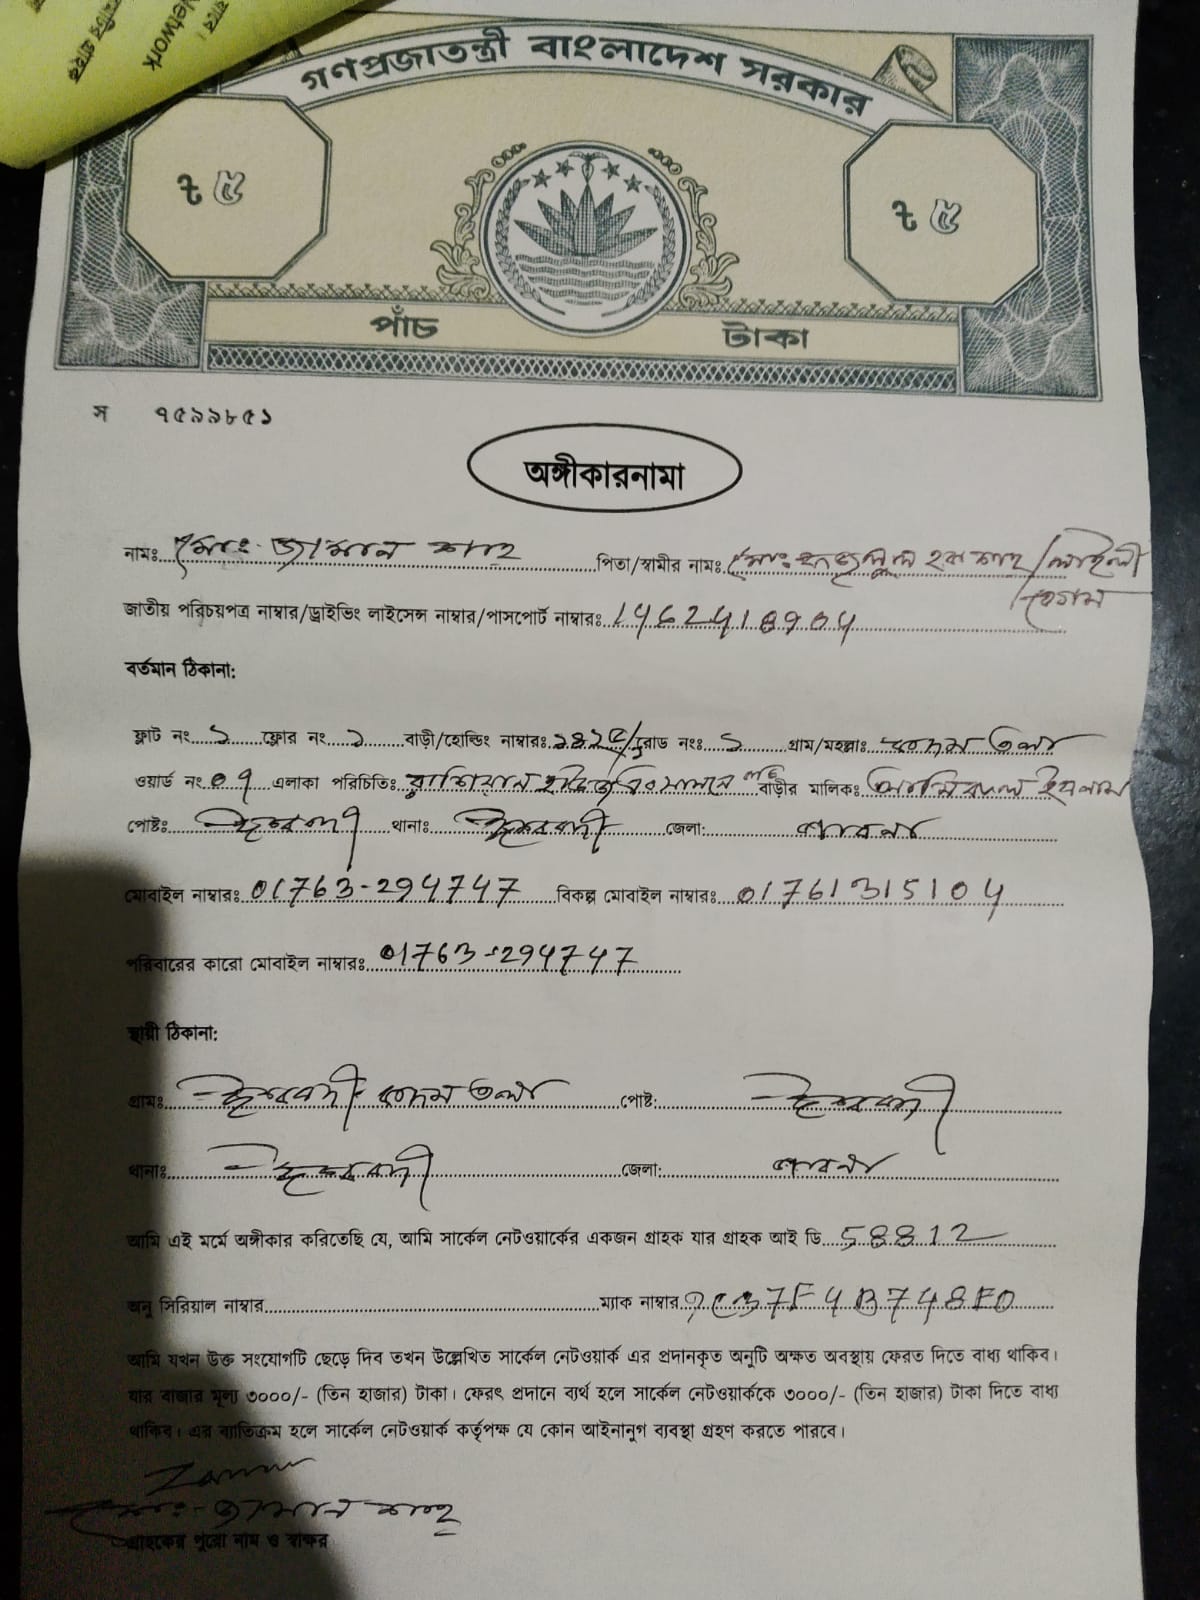 Network
গণপ্রজাতন্ত্রী বাংলাদেশ সরকার
৳ ৫ ৳ ৫
পাঁচ টাকা
স ৭৫৯৯৮৫১
অঙ্গীকারনামা
নামঃ মোঃ জামান শাহ পিতা/স্বামীর নামঃ মোঃ ফজলুল হক শাহ/লাইলী
বেগম
জাতীয় পরিচয়পত্র নাম্বার/ড্রাইভিং লাইসেন্স নাম্বার/পাসপোর্ট নাম্বারঃ 1962418904
বর্তমান ঠিকানা:
ফ্লাট নং ১ ফ্লোর নং ১ বাড়ী/হোল্ডিং নাম্বারঃ রোড নংঃ ১ গ্রাম/মহল্লাঃ কদম তলা
ওয়ার্ড নং ০৭ এলাকা পরিচিতিঃ বাড়ীর মালিকঃ ইসলাম
পোষ্টঃ ঈশ্বরদী থানাঃ ঈশ্বরদী জেলা: পাবনা
মোবাইল নাম্বারঃ 01763-294747 বিকল্প মোবাইল নাম্বারঃ 01761315104
পরিবারের কারো মোবাইল নাম্বারঃ 01763-294747
স্থায়ী ঠিকানা:
গ্রামঃ ঈশ্বরদী কদম তলা পোষ্ট: ঈশ্বরদী
থানাঃ ঈশ্বরদী জেলা: পাবনা
আমি এই মর্মে অঙ্গীকার করিতেছি যে, আমি সার্কেল নেটওয়ার্কের একজন গ্রাহক যার গ্রাহক আই ডি 58812
অনু সিরিয়াল নাম্বার ম্যাক নাম্বার
আমি যখন উক্ত সংযোগটি ছেড়ে দিব তখন উল্লেখিত সার্কেল নেটওয়ার্ক এর প্রদানকৃত অনুটি অক্ষত অবস্থায় ফেরত দিতে বাধ্য থাকিব।
যার বাজার মূল্য ৩০০০/- (তিন হাজার) টাকা। ফেরৎ প্রদানে ব্যর্থ হলে সার্কেল নেটওয়ার্ককে ৩০০০/- (তিন হাজার) টাকা দিতে বাধ্য
থাকিব। এর ব্যতিক্রম হলে সার্কেল নেটওয়ার্ক কর্তৃপক্ষ যে কোন আইনানুগ ব্যবস্থা গ্রহণ করতে পারবে।
মোঃ জামান শাহ
গ্রাহকের পুরো নাম ও স্বাক্ষর